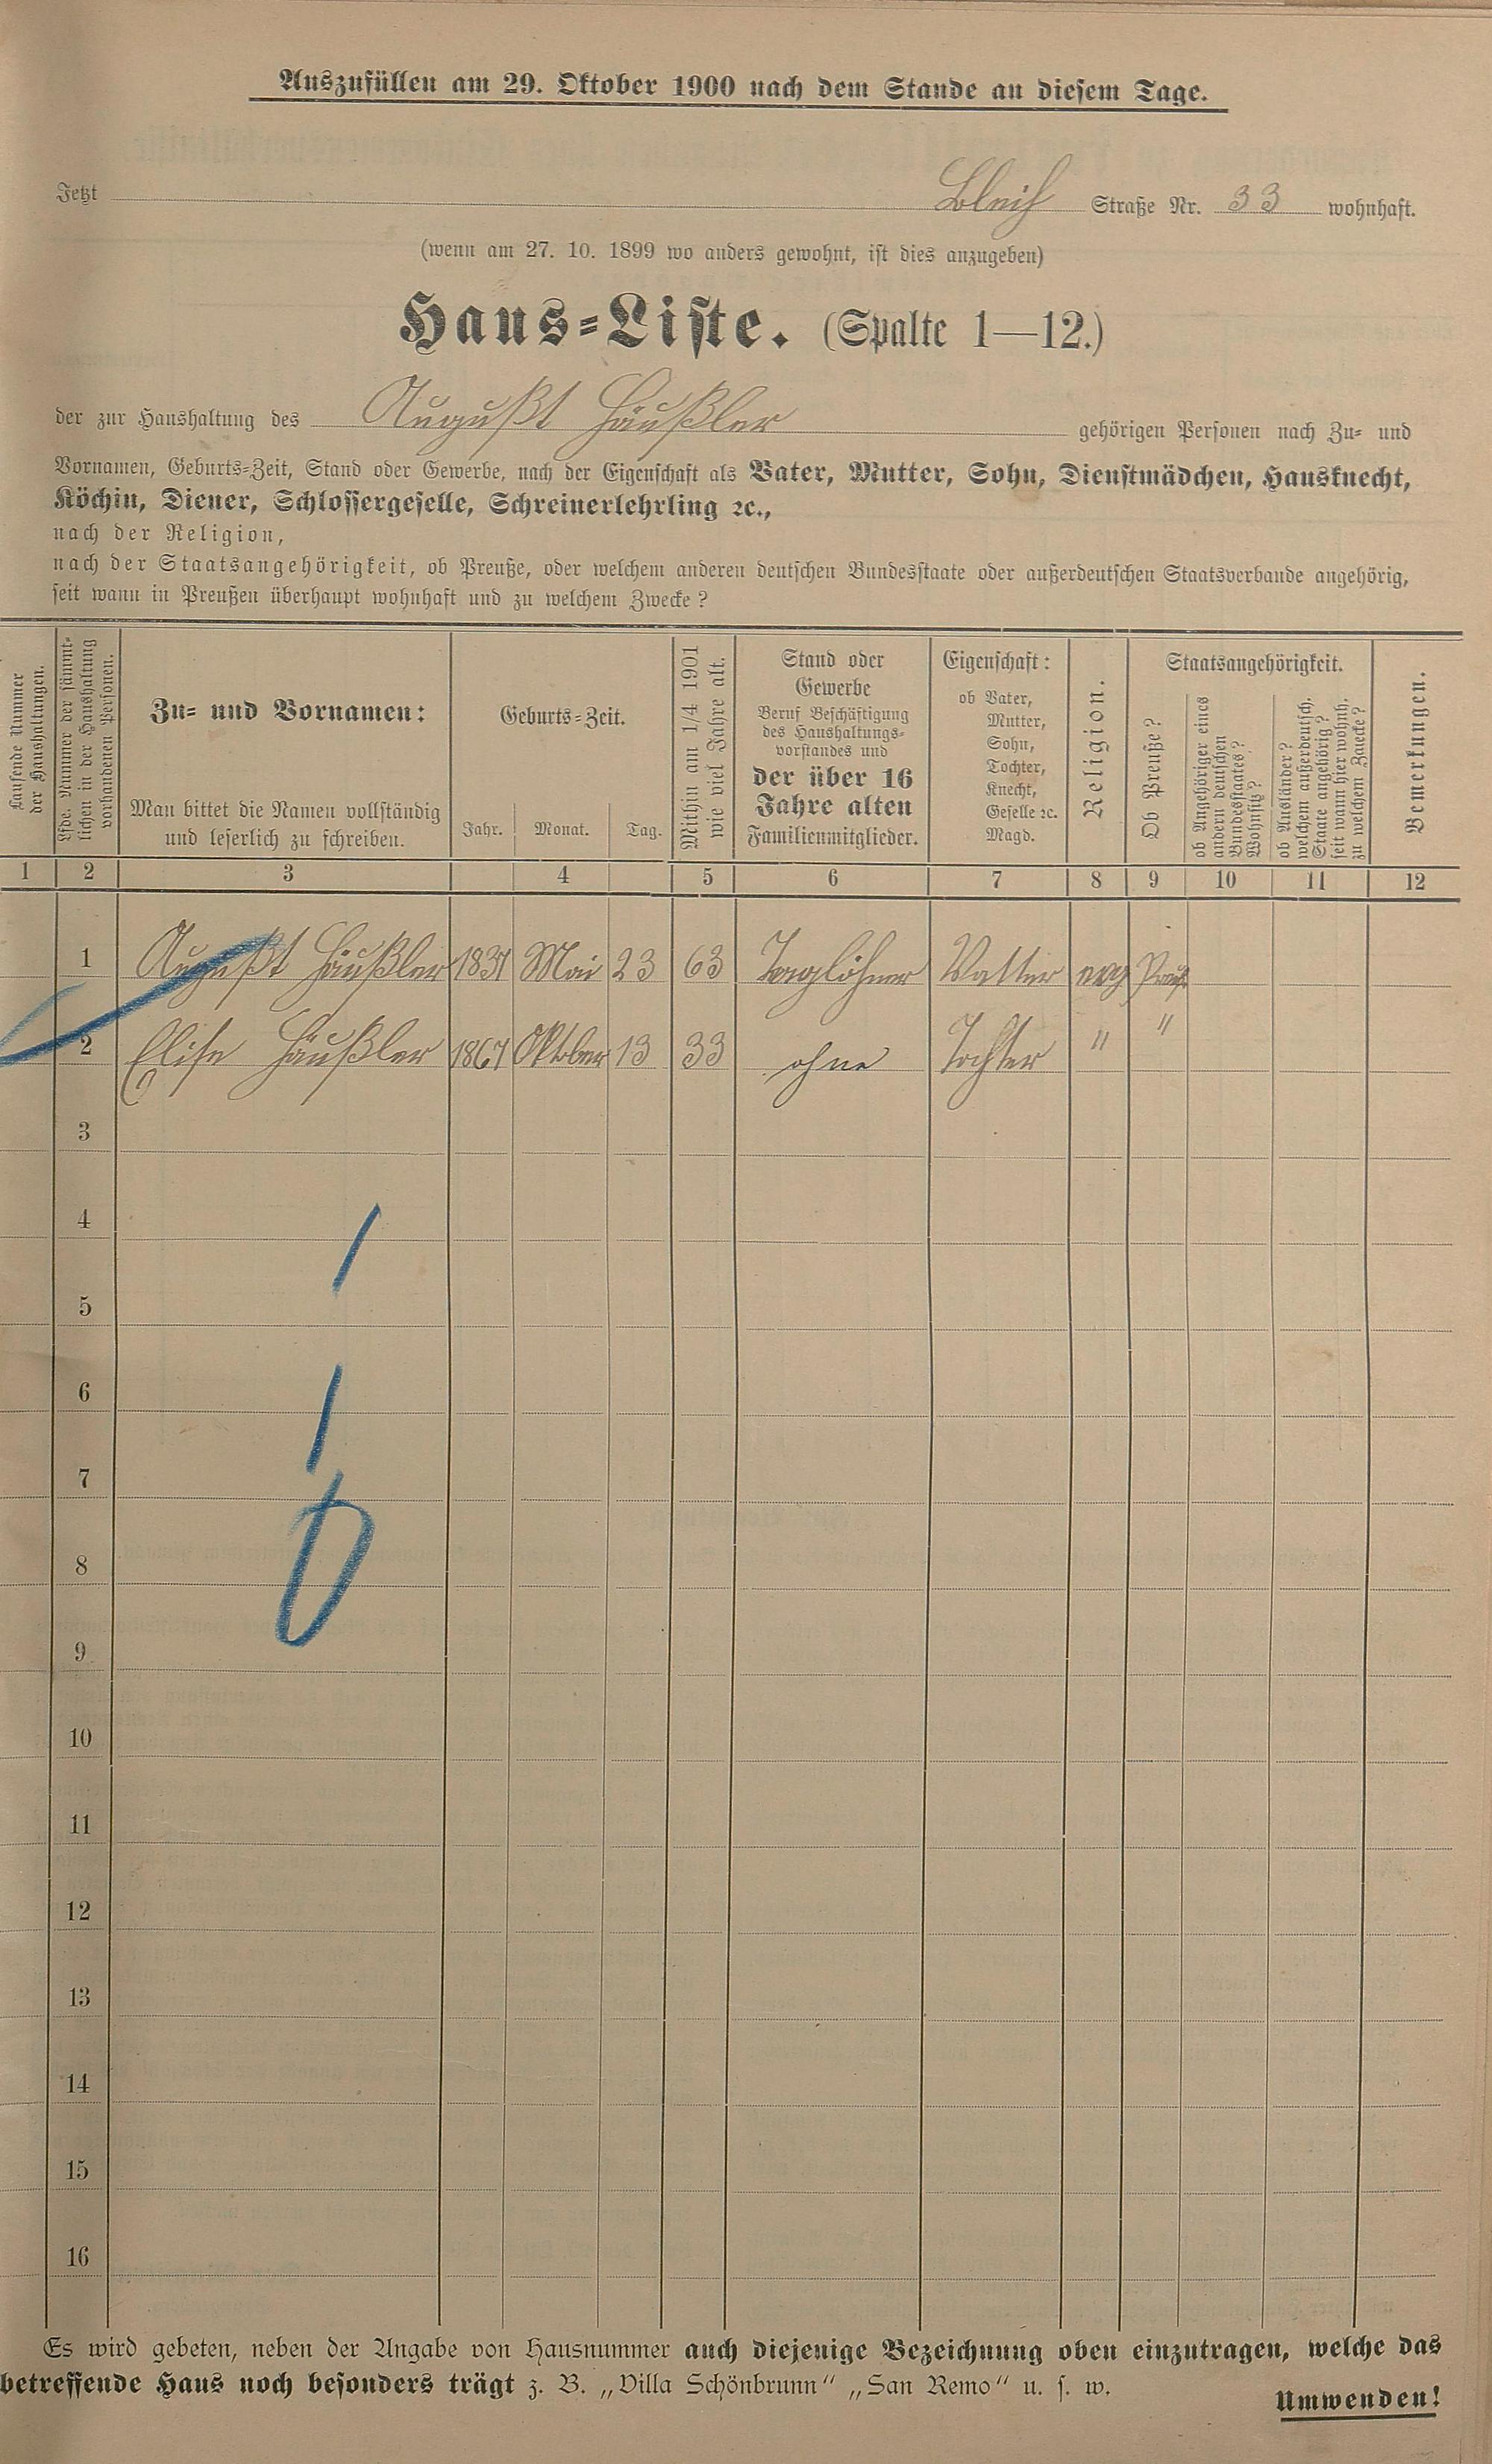 Auszufüllen am 29. Oktober 1900 nach dem Stande an diesem Tage.
Jetzt Straße Nr. 33 wohnhaft.
(wenn am 27. 10. 1899 wo anders gewohnt, ist dies anzugeben)
Haus-Liste. (Spalte 1—12.)
der zur Haushaltung des Augußt Häußler gehörigen Personen nach Zu- und
Vornamen, Geburts-Zeit, Stand oder Gewerbe, nach der Eigenschaft als Vater, Mutter, Sohn, Dienstmädchen, Hausknecht,
Köchin, Diener, Schlossergeselle, Schreinerlehrling ꝛc.,
nach der Religion,
nach der Staatsangehörigkeit, ob Preuße, oder welchem anderen deutschen Bundesstaate oder außerdeutschen Staatsverbande angehörig,
seit wann in Preußen überhaupt wohnhaft und zu welchem Zwecke?
Laufende Nummer
der Haushaltungen.
Lfde. Nummer der sämmt-
lichen in der Haushaltung
vorhandenen Personen.
Zu- und Vornamen:
Man bittet die Namen vollständig
und leserlich zu schreiben.
Geburts-Zeit.
Jahr. Monat. Tag.
Mithin am 1/4 1901
wie viel Jahre alt.
Stand oder
Gewerbe
Beruf Beschäftigung
des Haushaltungs-
vorstandes und
der über 16
Jahre alten
Familienmitglieder.
Eigenschaft:
ob Vater,
Mutter,
Sohn,
Tochter,
Knecht,
Geselle ꝛc.
Magd.
Religion.
Staatsangehörigkeit.
Ob Preuße?
ob Angehöriger eines
andern deutschen
Bundesstaates?
Wohnsitz?
ob Ausländer?
welchem außerdeutsch.
Staate angehörig?
seit wann hier wohnh.
zu welchem Zwecke?
Bemerkungen.
1 2 3 4 5 6 7 8 9 10 11 12
1 Augußt Häußler 1837 Mai 23 63 Taglöhner Vatter evg Preuß
2 Elise Häußler 1867 Oktober 13 33 ohne Tochter " "
3
4
5
6
7
8
9
10
11
12
13
14
15
16
Es wird gebeten, neben der Angabe von Hausnummer auch diejenige Bezeichnung oben einzutragen, welche das
betreffende Haus noch besonders trägt z. B. „Villa Schönbrunn" „San Remo" u. s. w.
Umwenden!